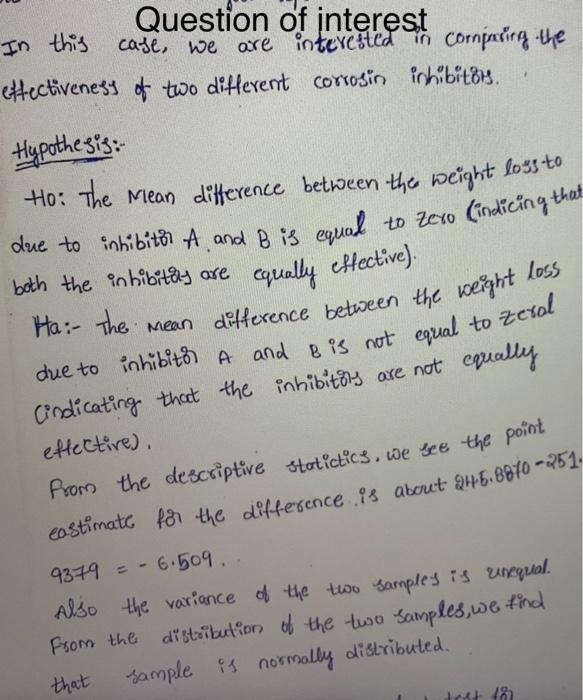 Question of interest
In this case, we are interested in comparing the
effectiveness of two different corrosin inhibitors.
Hypothesis:-
Ho: The Mean difference between the weight loss to
due to inhibitor A and B is equal to zero (indicing that
both the inhibitors are equally effective).
Ha:- The Mean difference between the weight loss
due to inhibitor A and B is not equal to zeral
(indicating that the inhibitors are not equally
effective).
From the descriptive statictics, we see the point
eastimate for the difference is about 245.8870-251.
9379 = - 6.509.
Also the variance of the two samples is unequal.
From the distribution of the two samples, we find
that sample is normally distributed.